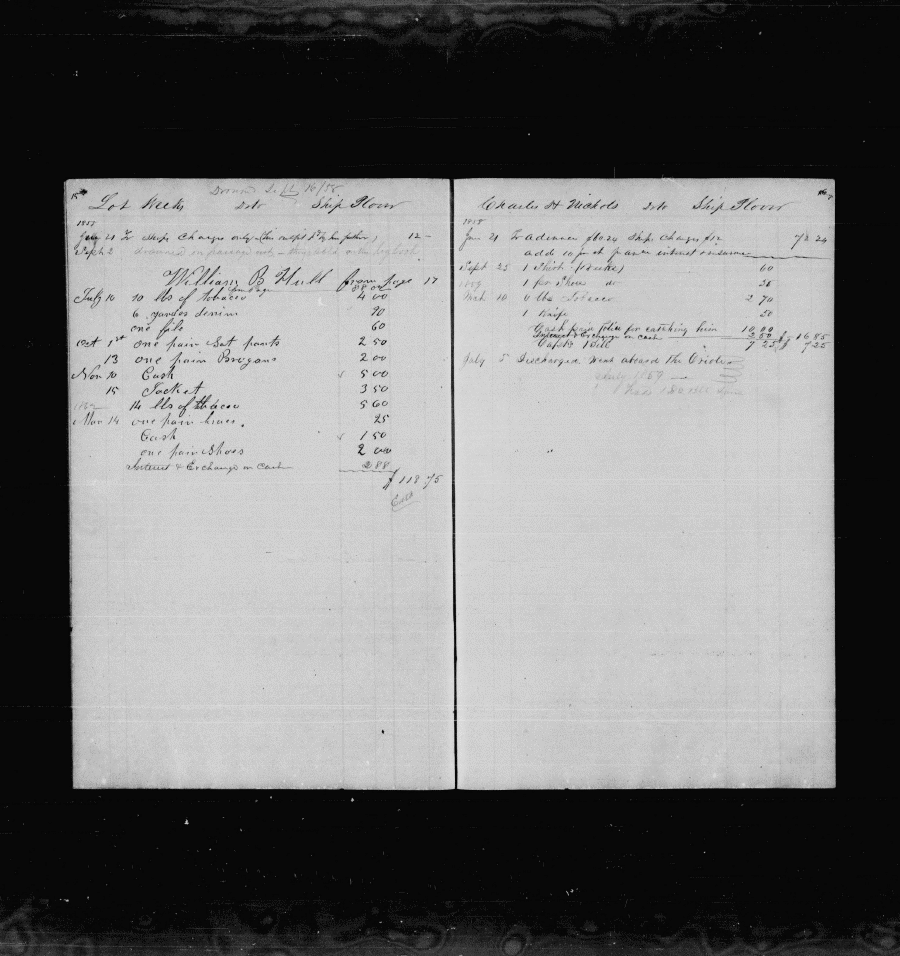 15
Drowned Sept 16/58
Lot Weeks Dr to Ship Plover
1858
Jany 21 To Ships Charges only (his outfit by his father) 12 –
Sept 2 drowned on passage
William B Hull from page 17
July 10 10 lbs of tobacco 4 00
6 yardes denim 90
one file 60
Oct 1st one pair Sat pants 2 50
13 one pair Brogans 2 00
Nov 20 Cash 5 00
15 Jacket 3 50
14 lbs of tobacco 5 60
Mar 14 one pair 25
Cash 1 50
one pair Shoes 2 00
Interest & Exchange on Cash 2 88
$ 118 75
16
Charles H Nichols Dr to Ship Plover
1858
Jan 21 To Ships Charges $12 72 24
add interest insurance
Sept 25 1 Shirt 60
1859 1 pr Shoes do
Mch 10 6 lbs Tobacco 2 70
1 Knife 50
Cash paid Police for catching him 10 00
Interest & Exchange on Cash 2 50 $ 16 85
Capts Bill 7 25 $ 7 25
July 5 Discharged Went aboard the
July 1859